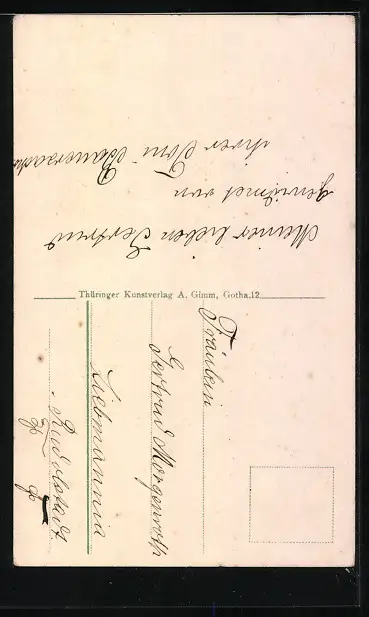 Meiner lieben Gertrud
gewidmet von
ihrer Toni Bauersachs
Thüringer Kunstverlag A. Gimm, Gotha.12
Fräulein
Gertrud Morgenroth
Liebmannia
Rudolstadt.